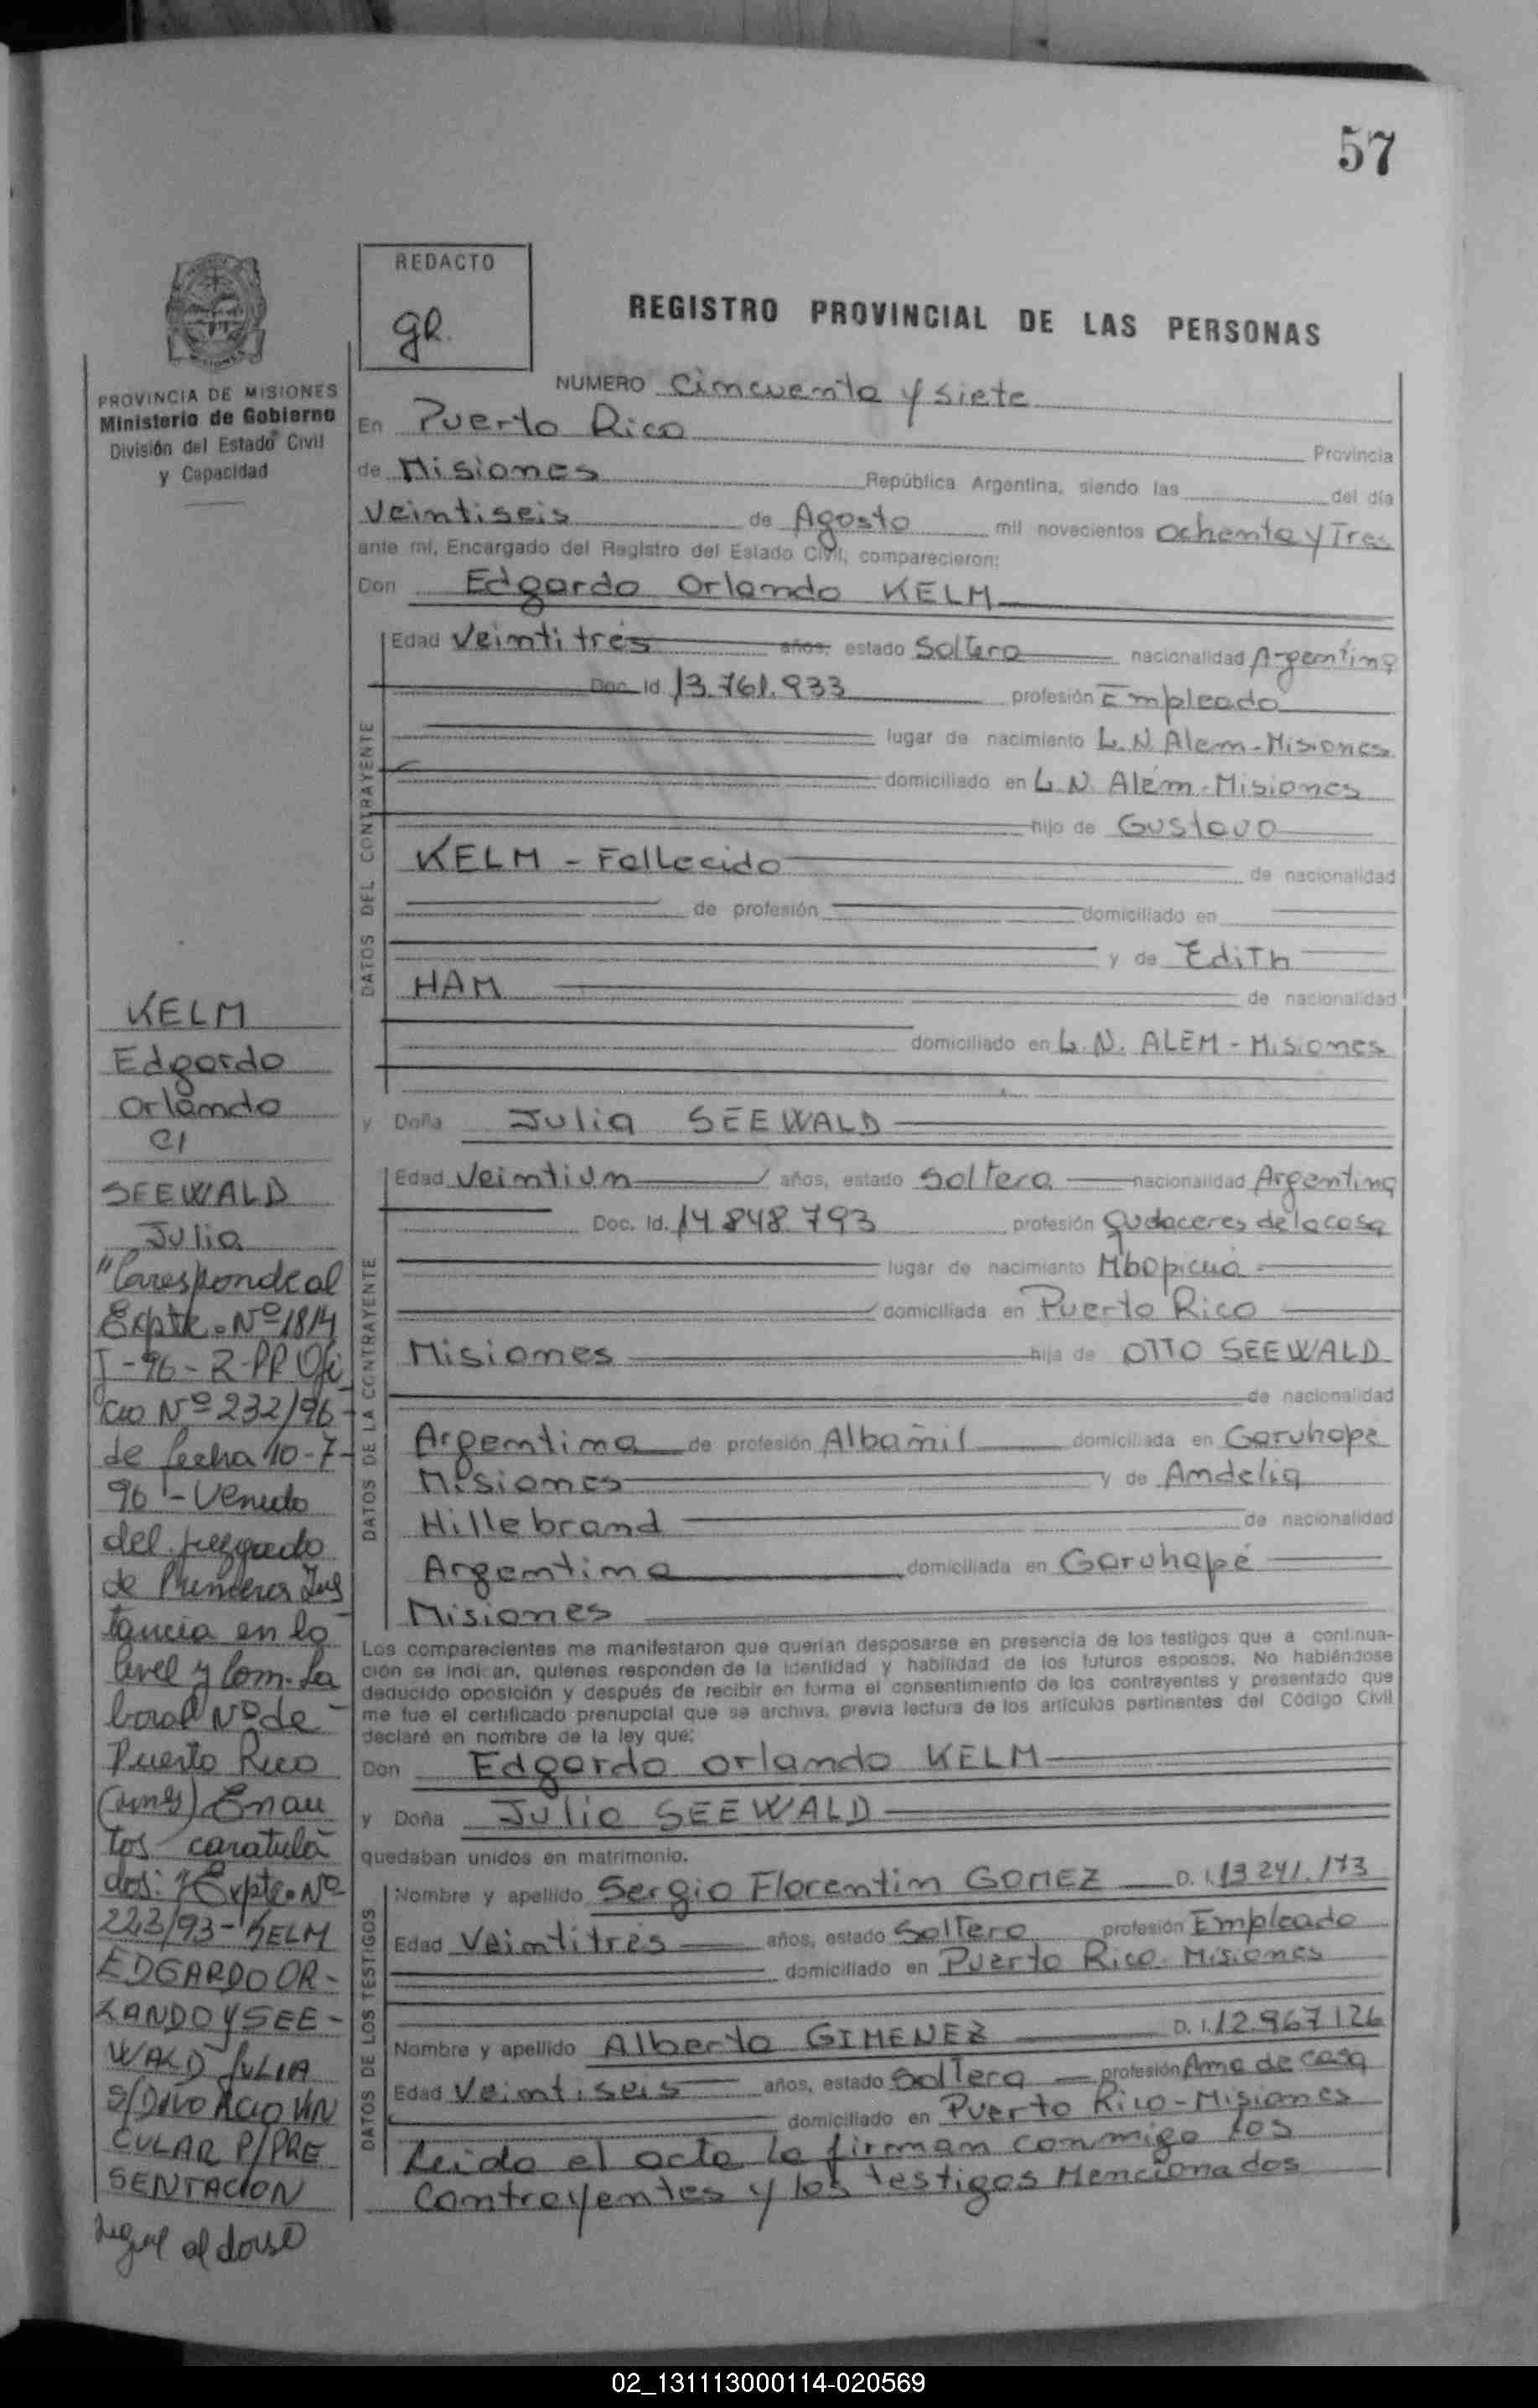 57
REDACTO
gR.
REGISTRO PROVINCIAL DE LAS PERSONAS
PROVINCIA DE MISIONES
Ministerio de Gobierno
División del Estado Civil
y Capacidad
NUMERO Cimcuenta y siete
En Puerto Rico Provincia
de Misiones República Argentina, siendo las del día
Veintiseis de Agosto mil novecientos ochenta y Tres
ante mí, Encargado del Registro del Estado Civil, comparecieron:
Don Edgardo Orlando KELM
DATOS DEL CONTRAYENTE
Edad Veintitrés años, estado Soltero nacionalidad Argentina
Doc. Id. 13.761.933 profesión Empleado
lugar de nacimiento L. N. Alem - Misiones
domiciliado en L. N. Alem - Misiones
hijo de Gustavo
KELM - Fallecido de nacionalidad
de profesión domiciliado en
y de Edith
HAM de nacionalidad
domiciliado en L. N. ALEM - Misiones
y Doña Julia SEEWALD
DATOS DE LA CONTRAYENTE
Edad Veintiun años, estado Soltera nacionalidad Argentina
Doc. Id. 14.848.793 profesión Qudaceres de la casa
lugar de nacimiento Mbopicuá
domiciliada en Puerto Rico
Misiones hija de OTTO SEEWALD
de nacionalidad
Argentina de profesión Albañil domiciliada en Garuhapé
Misiones y de Amdelia
Hillebrand de nacionalidad
Argentina domiciliada en Garuhapé
Misiones
Los comparecientes me manifestaron que querían desposarse en presencia de los testigos que a continua-
ción se indican, quienes responden de la identidad y habilidad de los futuros esposos. No habiéndose
deducido oposición y después de recibir en forma el consentimiento de los contrayentes y presentado que
me fue el certificado prenupcial que se archiva, previa lectura de los artículos pertinentes del Código Civil
declaré en nombre de la ley que:
Don Edgardo Orlando KELM
y Doña Julia SEEWALD
quedaban unidos en matrimonio.
DATOS DE LOS TESTIGOS
Nombre y apellido Sergio Florentin GOMEZ D. I. 13.241.173
Edad Veintitres años, estado Soltero profesión Empleado
domiciliado en Puerto Rico - Misiones
Nombre y apellido Alberta GIMENEZ D. I. 12.967.126
Edad Veintiseis años, estado Soltera profesión Ama de casa
domiciliado en Puerto Rico - Misiones
Leida el acta la firman conmigo los
Contrayentes y los testigos Mencionados
KELM
Edgardo
Orlando
C/
SEEWALD
Julia
"Corresponde al
Expte. Nº 1814
I-96-R-PR Ofi
cio Nº 232/96-
de fecha 10-7-
96 - Venido
del juzgado
de Primera Ins
tancia en lo
Civil y Com. La
boral Nº de
Puerto Rico
(mnes) En au
tos caratula
dos: "Expte. Nº
223/93 - KELM
EDGARDO OR-
LANDO Y SEE-
WALD JULIA
S/DIVORCIO VIN
CULAR P/PRE
SENTACION
Sigue al dorso
02_131113000114-020569